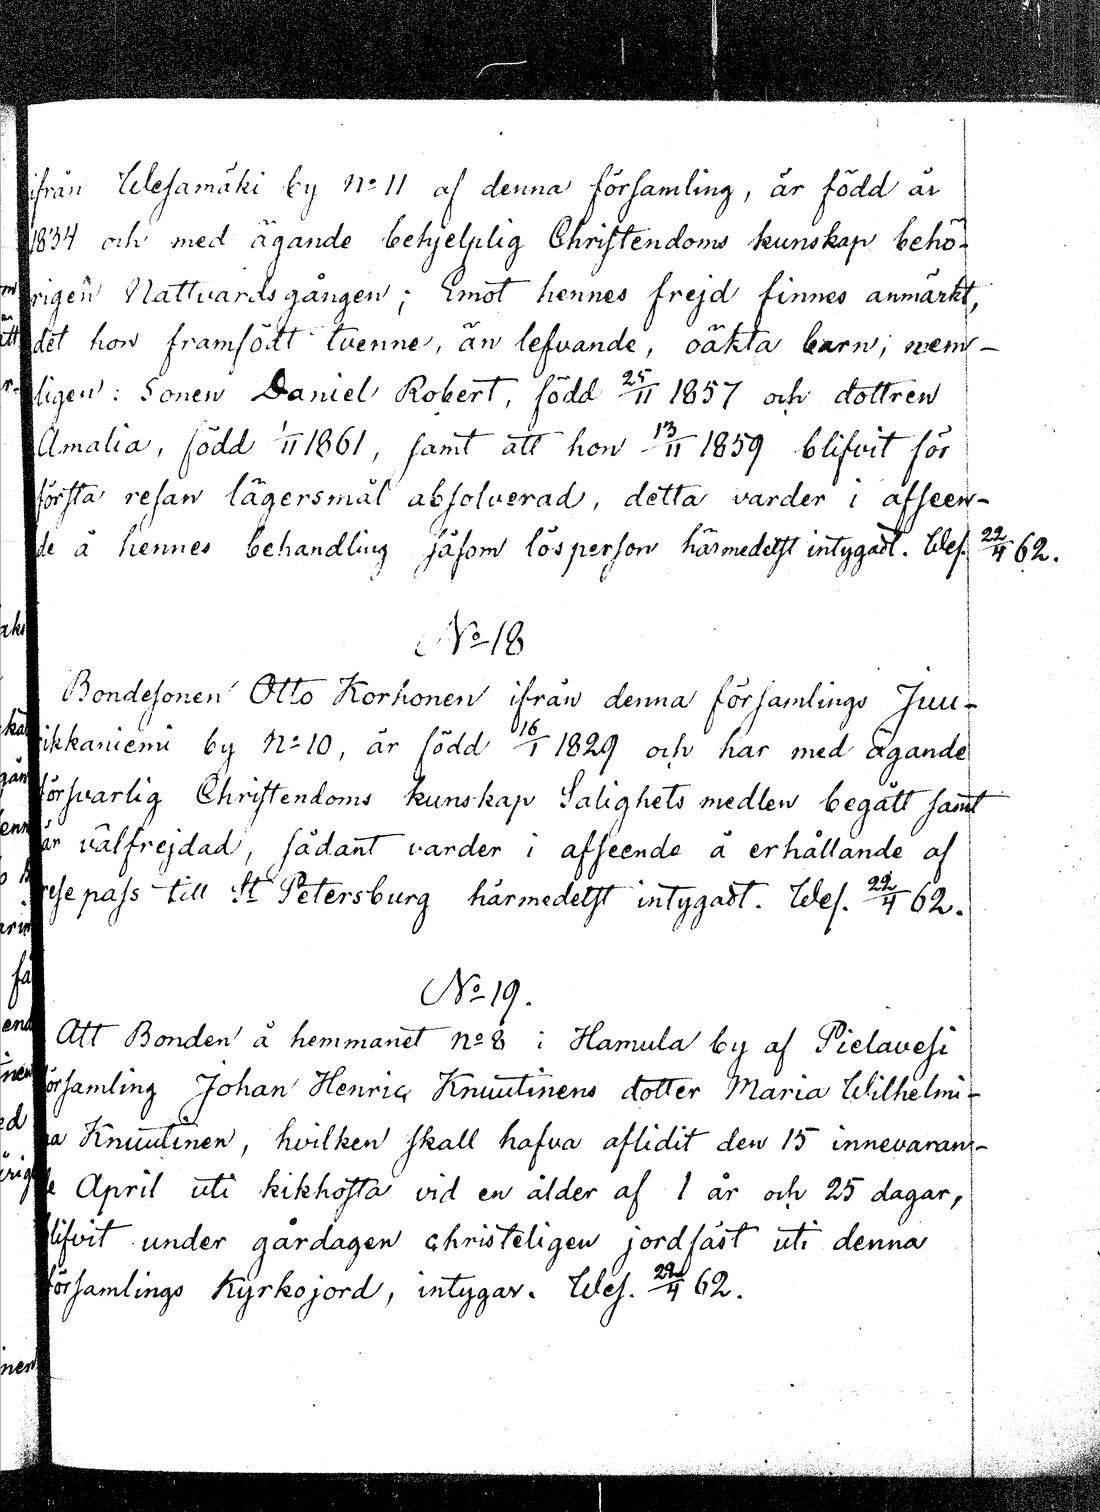 ifrån Wesamäki by No 11 af denna församling, är född år
1834 och med ägande behjelplig Christendoms kunskap behö-
rigen Nattvardsgången; Emot hennes frejd finnes anmärkt,
det hon framfödt tvenne, än lefvande, oäkta barn; nem-
ligen: Sonen Daniel Robert, född 25/11 1857 och dottren
Amalia, född 1/11 1861, samt att hon 13/11 1859 blifvit för
första resan lägersmål absolverad, detta varder i afseen-
de å hennes behandling såsom lösperson härmedelst intygadt. Wes. 22/4 62.
No 18
Bondesonen Otto Korhonen ifrån denna församlings Juu-
rikkaniemi by No 10, är född 16/1 1829 och har med ägande
försvarlig Christendoms kunskap Salighets medlen begått samt
är välfrejdad, sådant varder i afseende å erhållande af
resepass till St Petersburg härmedelst intygadt. Wes. 22/4 62.
No 19.
Att Bonden å hemmanet No 8 i Hamula by af Pielavesi
församling Johan Henric Knuutinens dotter Maria Wilhelmi-
na Knuutinen, hvilken skall hafva aflidit den 15 innevaran-
de April uti kikhosta vid en ålder af 1 år och 25 dagar,
blifvit under gårdagen christeligen jordfäst uti denna
församlings Kyrkojord, intygar. Wes. 22/4 62.